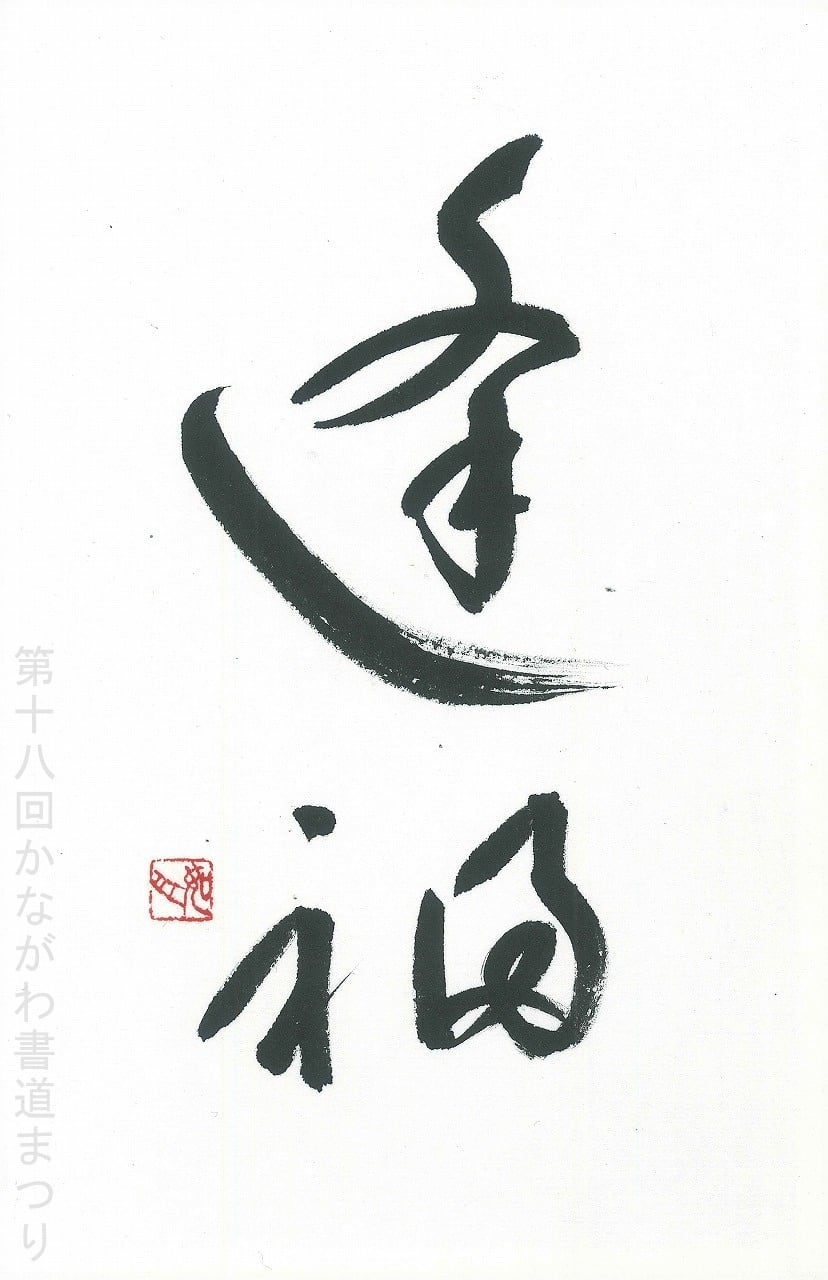 逢福
第十八回かながわ書道まつり